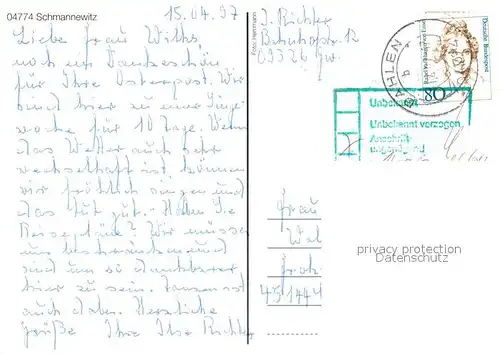 04774 Schmannewitz
15.04.97
Liebe Frau
noch ein Dankeschön
für Ihre Osterpost. Wir
sind hier zu einer
woche für 10 Tage. Wenn
das Wetter auch sehr
wechselhaft ist, können
wir fröhlich singen und
das tut gut. - Haben Sie
Reisepläne? Wir müssen
uns beschränken und
sind um so dankbarer
hier zu sein.
auch dabei. Herzliche
Grüße Ihre Ilse Richter
Foto: Herrmann
I. Richter
Bahnhofstr. 12
09526
DAHLEN
Deutsche Bundespost
80
Unbekannt
Unbekannt verzogen
Anschrift
ungenügend
Frau
privacy protection
Datenschutz